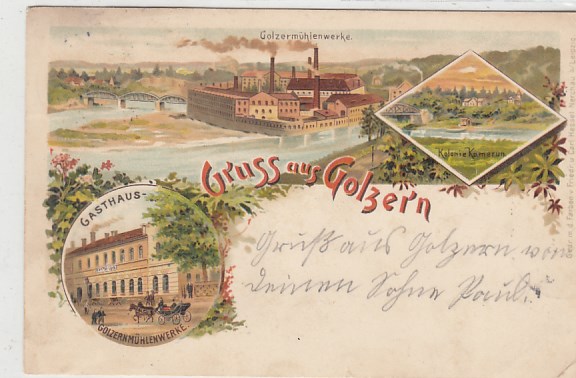 Golzermühlenwerke.
Kolonie Kamerun
Gruss aus Golzern
GASTHAUS-
GOLZERNMÜHLENWERKE
Gruß aus Golzern von
deinem Sohne Paul.